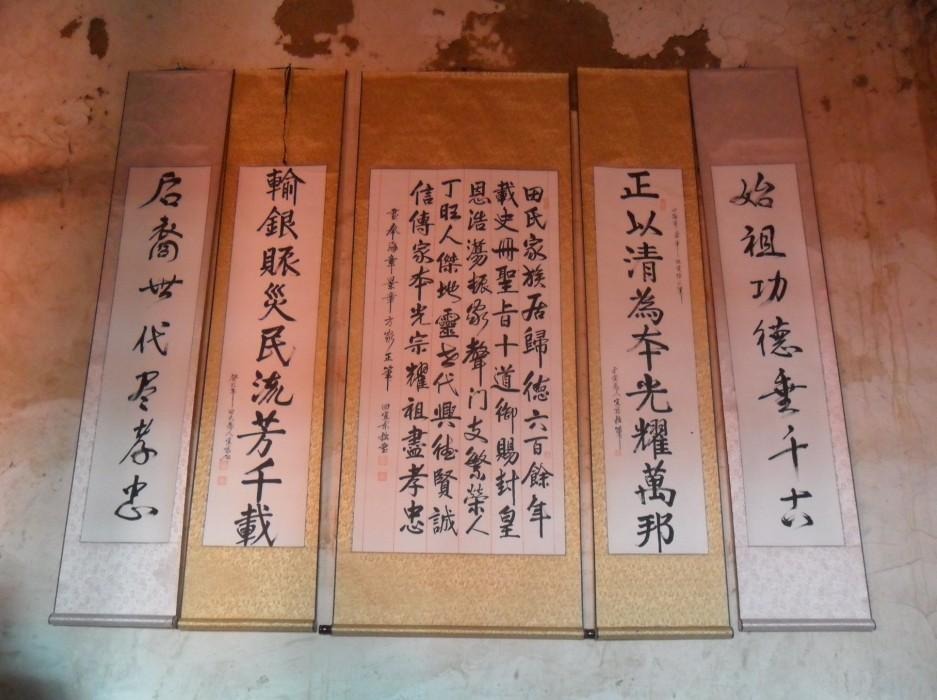 始祖功德垂千古
正以清為本光耀萬邦
田氏家族居歸德六百餘年
載史冊聖旨十道御賜封皇
恩浩蕩振家聲门支繁榮人
丁旺人傑地靈世代興德賢誠
信傳家本光宗耀祖盡孝忠
輸銀賑災民流芳千載
启裔世代尽孝忠